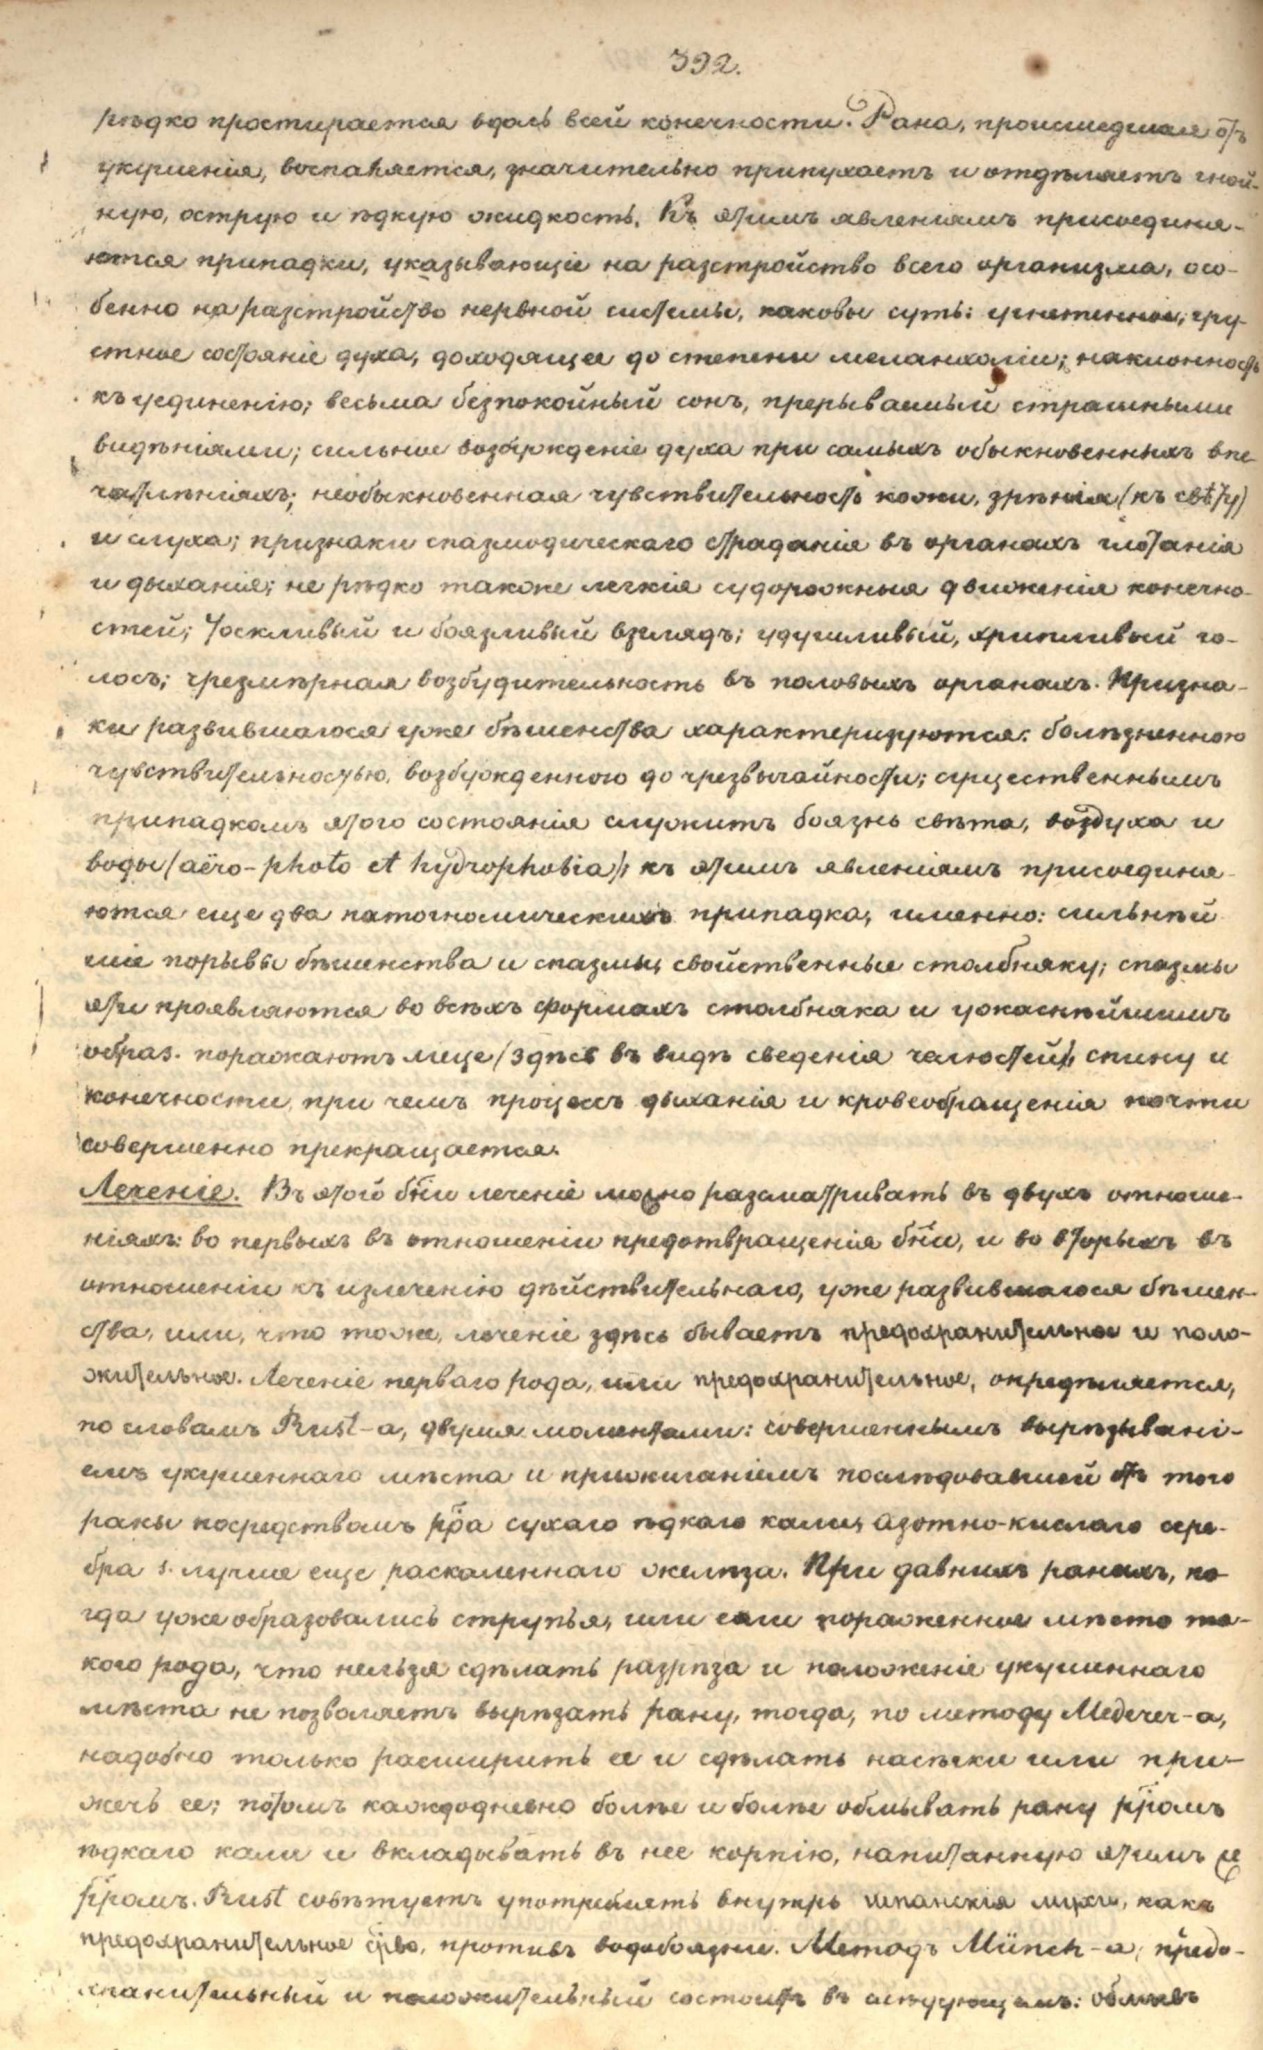 392.
рѣдко простирается вдоль всей конечности. Рана, происшедшая отъ
укушенія, воспаляется, значительно припухаетъ и отдѣляетъ гной-
ную, острую и ѣдкую жидкость. Къ этимъ явленіямъ присоединя-
ются припадки, указывающіе на разстройство всего организма, осо-
бенно на разстройство нервной системы, каковы суть: угнетенное, гру-
стное состояніе духа, доходящее до степени меланхоліи; наклонность
къ уединенію; весьма безпокойный сонъ, прерываемый страшными
видѣніями; сильное возбужденіе духа при самыхъ обыкновенныхъ впе-
чатлѣніяхъ; необыкновенная чувствительность кожи, зрѣнія (къ свѣту)
и слуха; признаки спазмодическаго страданія въ органахъ глотанія
и дыханія; не рѣдко также легкія судорожныя движенія конечно-
стей; тоскливый и боязливый взглядъ; удушливый, хрипливый го-
лосъ; чрезмѣрная возбудительность въ половыхъ органахъ. Призна-
ки развившагося уже бѣшенства характеризуются: болѣзненною
чувствительностью, возбужденною до чрезвычайности; существеннымъ
припадкомъ этого состоянія служитъ боязнь свѣта, воздуха и
воды (aëro-photo et hydrophobia); къ этимъ явленіямъ присоединя-
ются еще два патогномическихъ припадка, именно: сильнѣй-
шіе порывы бѣшенства и спазмы, свойственные столбняку; спазмы
эти проявляются во всѣхъ формахъ столбняка и ужаснѣйшимъ
образ. поражаютъ лице (здѣсь въ видѣ сведенія челюстей), спину и
конечности, при чемъ процессъ дыханія и кровеобращенія почти
совершенно прекращается.
Леченіе. Въ этой бни леченіе можно разсматривать въ двухъ отноше-
ніяхъ: во первыхъ въ отношеніи предотвращенія бни, и во вторыхъ въ
отношеніи къ излеченію дѣйствительнаго, уже развившагося бѣшен-
ства, или, что тоже, леченіе здѣсь бываетъ предохранительное и поло-
жительное. Леченіе перваго рода, или предохранительное, опредѣляется,
по словамъ Rust-а, двумя моментами: совершеннымъ вырѣзывані-
емъ укушеннаго мѣста и прижиганіемъ послѣдовавшей отъ того
раны посредствомъ рра сухаго ѣдкаго кали, азотно-кислаго сере-
бра s. лучше еще раскаленнаго желѣза. При давнихъ ранахъ, ко-
гда уже образовались струпья, или если пораженное мѣсто та-
кого рода, что нельзя сдѣлать разрѣза и положеніе укушеннаго
мѣста не позволяетъ вырѣзать рану, тогда, по методу Mederer-а,
надобно только расширить ее и сдѣлать насѣчки или при-
жечь ее; потомъ каждодневно болѣе и болѣе обмывать рану рромъ
ѣдкаго кали и вкладывать въ нее корпію, напитанную этимъ же
рромъ. Rust совѣтуетъ употреблять внутрь шпанскія мухи, какъ
предохранительное срво, противъ водобоязни. Методъ Münch-а, предо-
хранительный и положительный состоитъ въ слѣдующемъ: обмывъ